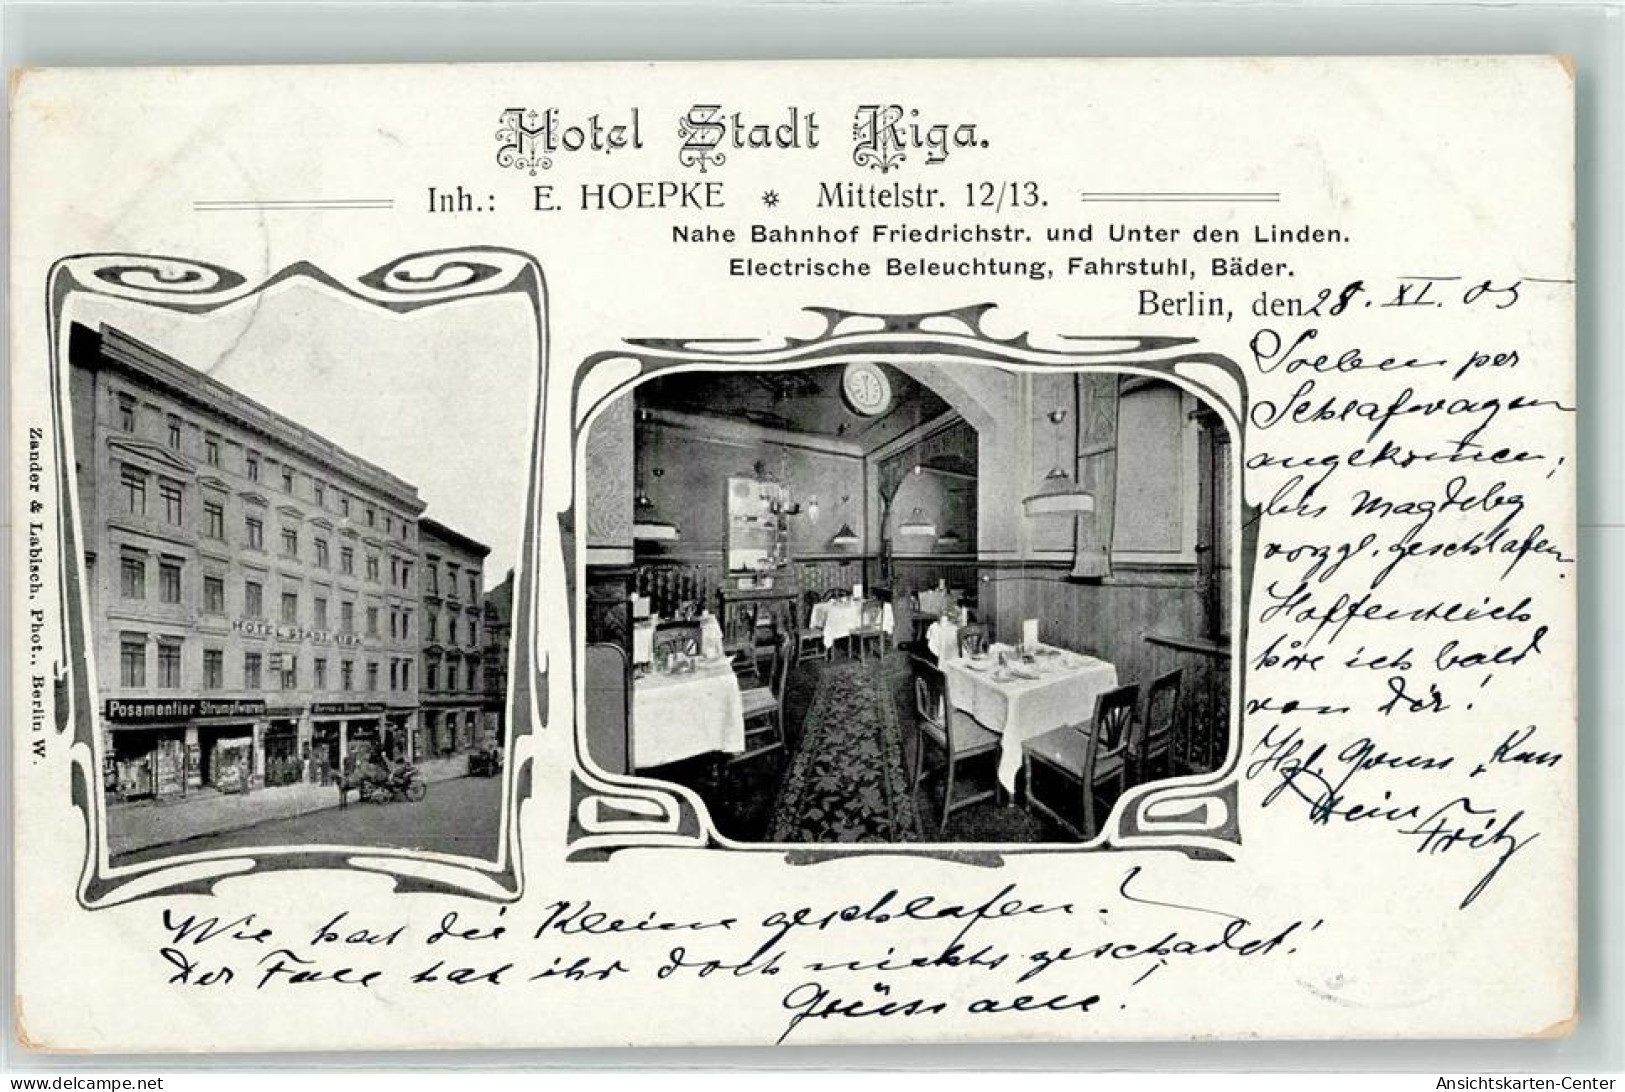 Hotel Stadt Riga.
Inh.: E. HOEPKE * Mittelstr. 12/13.
Nahe Bahnhof Friedrichstr. und Unter den Linden.
Electrische Beleuchtung, Fahrstuhl, Bäder.
Berlin, den 28. XI. 05
Soeben per
Schlafwagen
angekommen,
bis Magdebg
vorzgl. geschlafen.
Hoffentlich
höre ich bald
von Dir!
Hzl. Gruss
Dein Fritz
Wie hat die Kleine geschlafen?
Der Fall hat ihr doch nichts geschadet!
Grüsse alle!
HOTEL STADT RIGA
Posamentier Strumpfwaren
Zander & Labisch, Phot., Berlin W.
www.delcampe.net
Ansichtskarten-Center